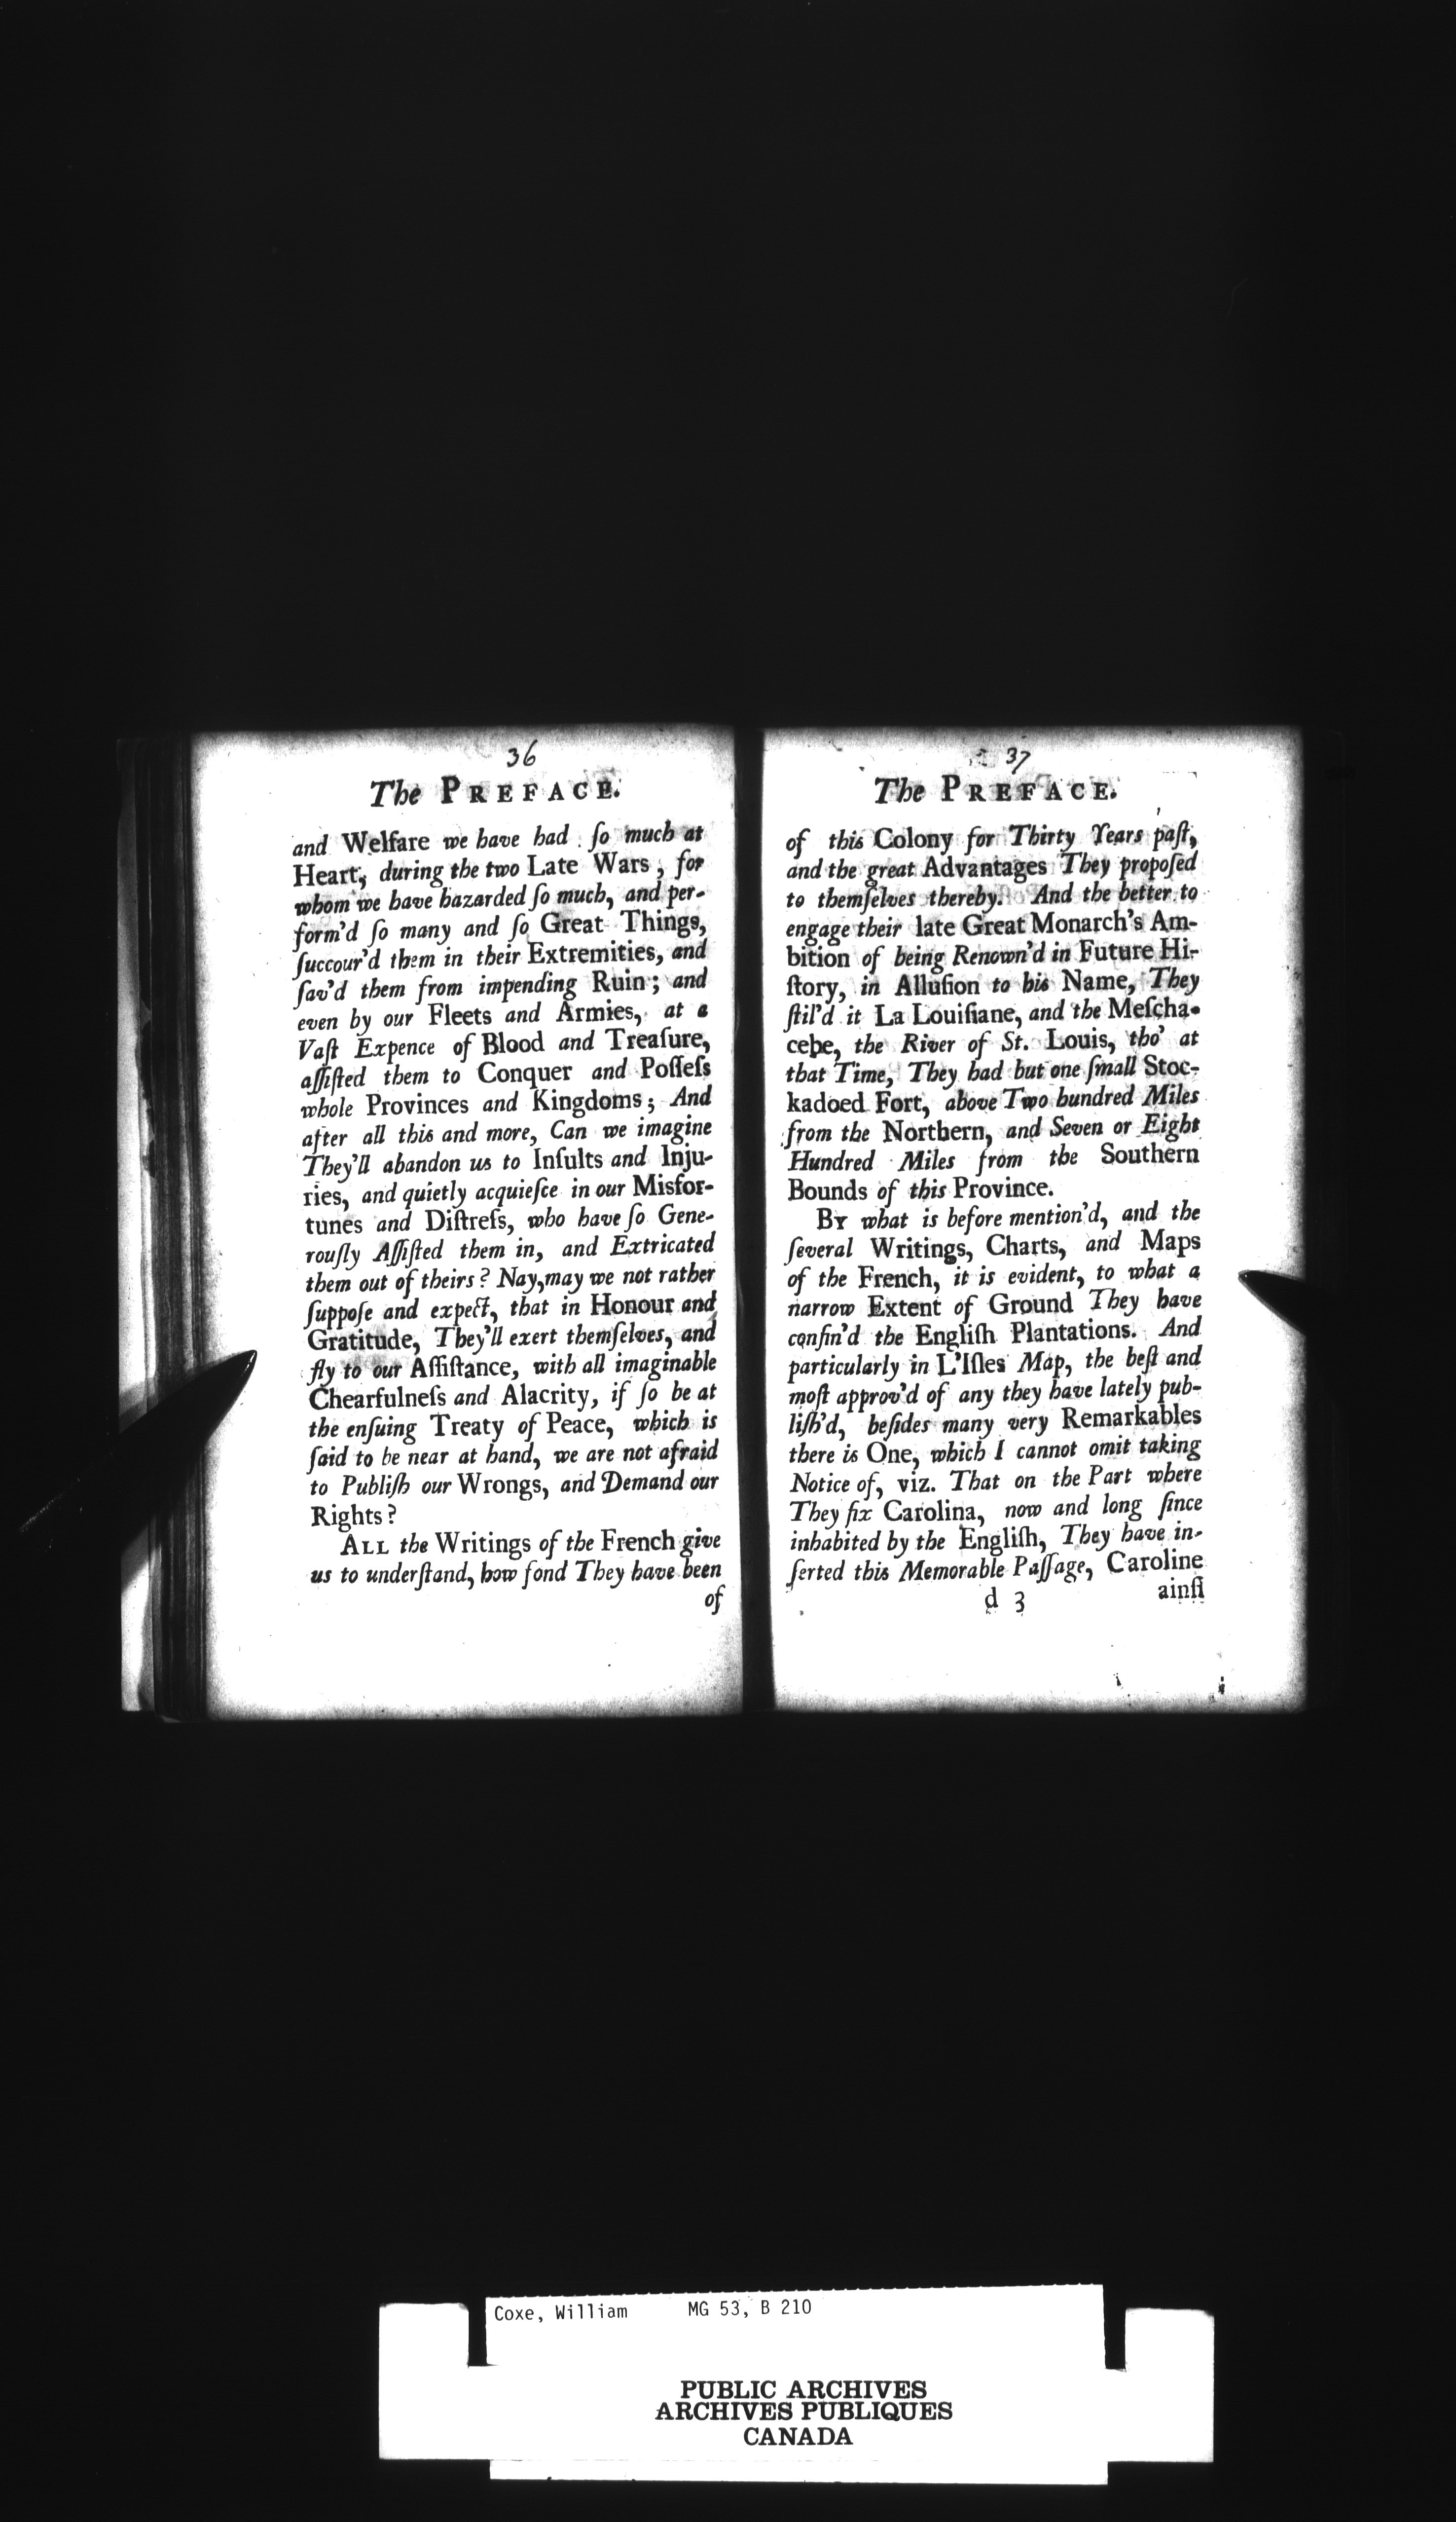 36
The PREFACE.
and Welfare we have had ſo much at
Heart, during the two Late Wars, for
whom we have hazarded ſo much, and per-
form'd ſo many and ſo Great Things,
ſuccour'd them in their Extremities, and
ſav'd them from impending Ruin; and
even by our Fleets and Armies, at a
Vaſt Expence of Blood and Treaſure,
aſſiſted them to Conquer and Poſſeſs
whole Provinces and Kingdoms; And
after all this and more, Can we imagine
They'll abandon us to Inſults and Inju-
ries, and quietly acquieſce in our Misfor-
tunes and Diſtreſs, who have ſo Gene-
rouſly Aſſiſted them in, and Extricated
them out of theirs? Nay, may we not rather
ſuppoſe and expect, that in Honour and
Gratitude, They'll exert themſelves, and
fly to our Aſſiſtance, with all imaginable
Chearfulneſs and Alacrity, if ſo be at
the enſuing Treaty of Peace, which is
ſaid to be near at hand, we are not afraid
to Publiſh our Wrongs, and Demand our
Rights?
ALL the Writings of the French give
us to underſtand, how fond They have been
of
37
The PREFACE.
of this Colony for Thirty Years paſt,
and the great Advantages They propoſed
to themſelves thereby. And the better to
engage their late Great Monarch's Am-
bition of being Renown'd in Future Hi-
ſtory, in Alluſion to his Name, They
ſtil'd it La Louiſiane, and the Meſcha-
cebe, the River of St. Louis, tho' at
that Time, They had but one ſmall Stoc-
kadoed Fort, above Two hundred Miles
from the Northern, and Seven or Eight
Hundred Miles from the Southern
Bounds of this Province.
BY what is before mention'd, and the
ſeveral Writings, Charts, and Maps
of the French, it is evident, to what a
narrow Extent of Ground They have
confin'd the Engliſh Plantations. And
particularly in L'Iſles Map, the beſt and
moſt approv'd of any they have lately pub-
liſh'd, beſides many very Remarkables
there is One, which I cannot omit taking
Notice of, viz. That on the Part where
They fix Carolina, now and long ſince
inhabited by the Engliſh, They have in-
ſerted this Memorable Paſſage, Caroline
d 3 ainſi
Coxe, William MG 53, B 210
PUBLIC ARCHIVES
ARCHIVES PUBLIQUES
CANADA